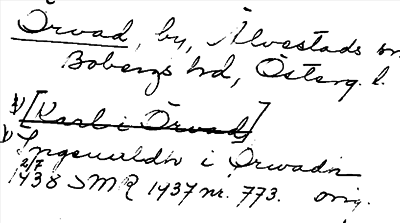 Örvad, by, Älvestads sn
Bobergs hd, Österg. l.
1) [Karl i Örvad]
1) Ingeuældh i Ørwadh
2/7
1438 SMR 1437 nr. 773. orig.